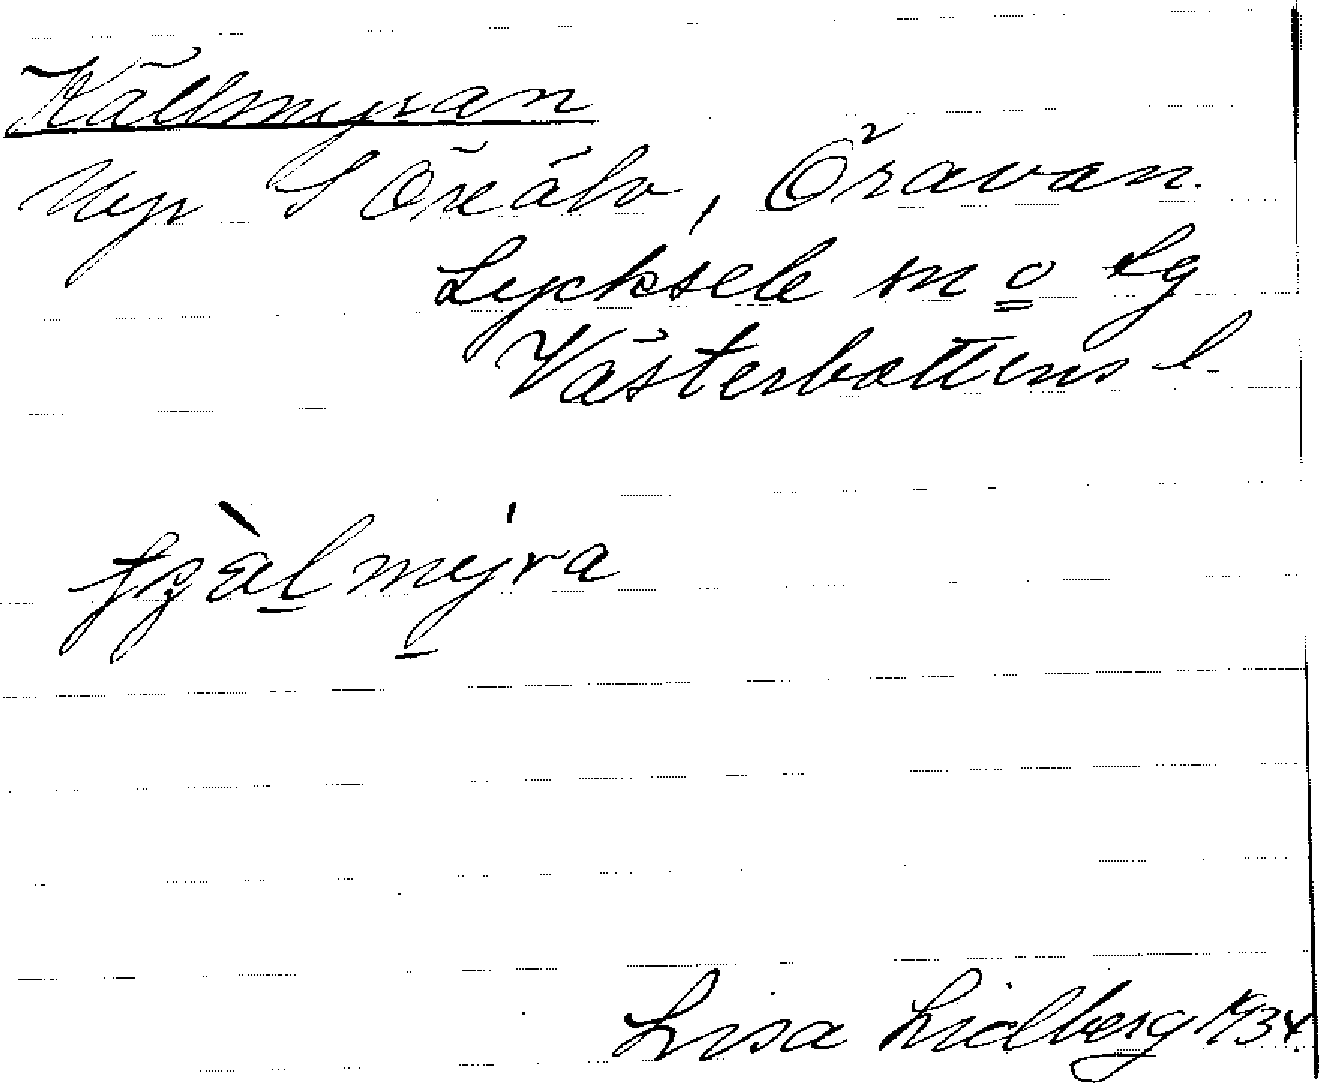 Källmyran
Myr S Öreälv, Öravan.
Lycksele sn o Lg
Västerbottens l.
Lisa Lidberg 1934